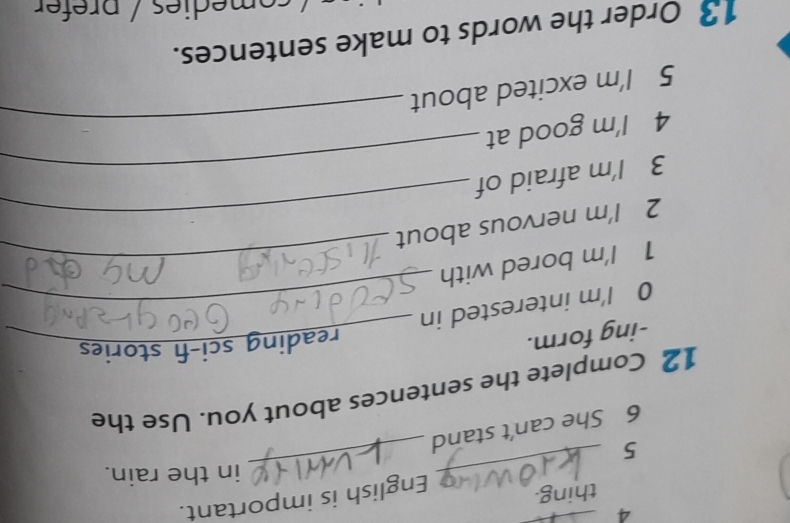 4
thing.
5 knowing English is important.
6 She can't stand running in the rain.
12 Complete the sentences about you. Use the
-ing form.
0 I'm interested in reading sci-fi stories
1 I'm bored with Geography
2 I'm nervous about my
3 I'm afraid of
4 I'm good at
5 I'm excited about
13 Order the words to make sentences.
comedies / prefer